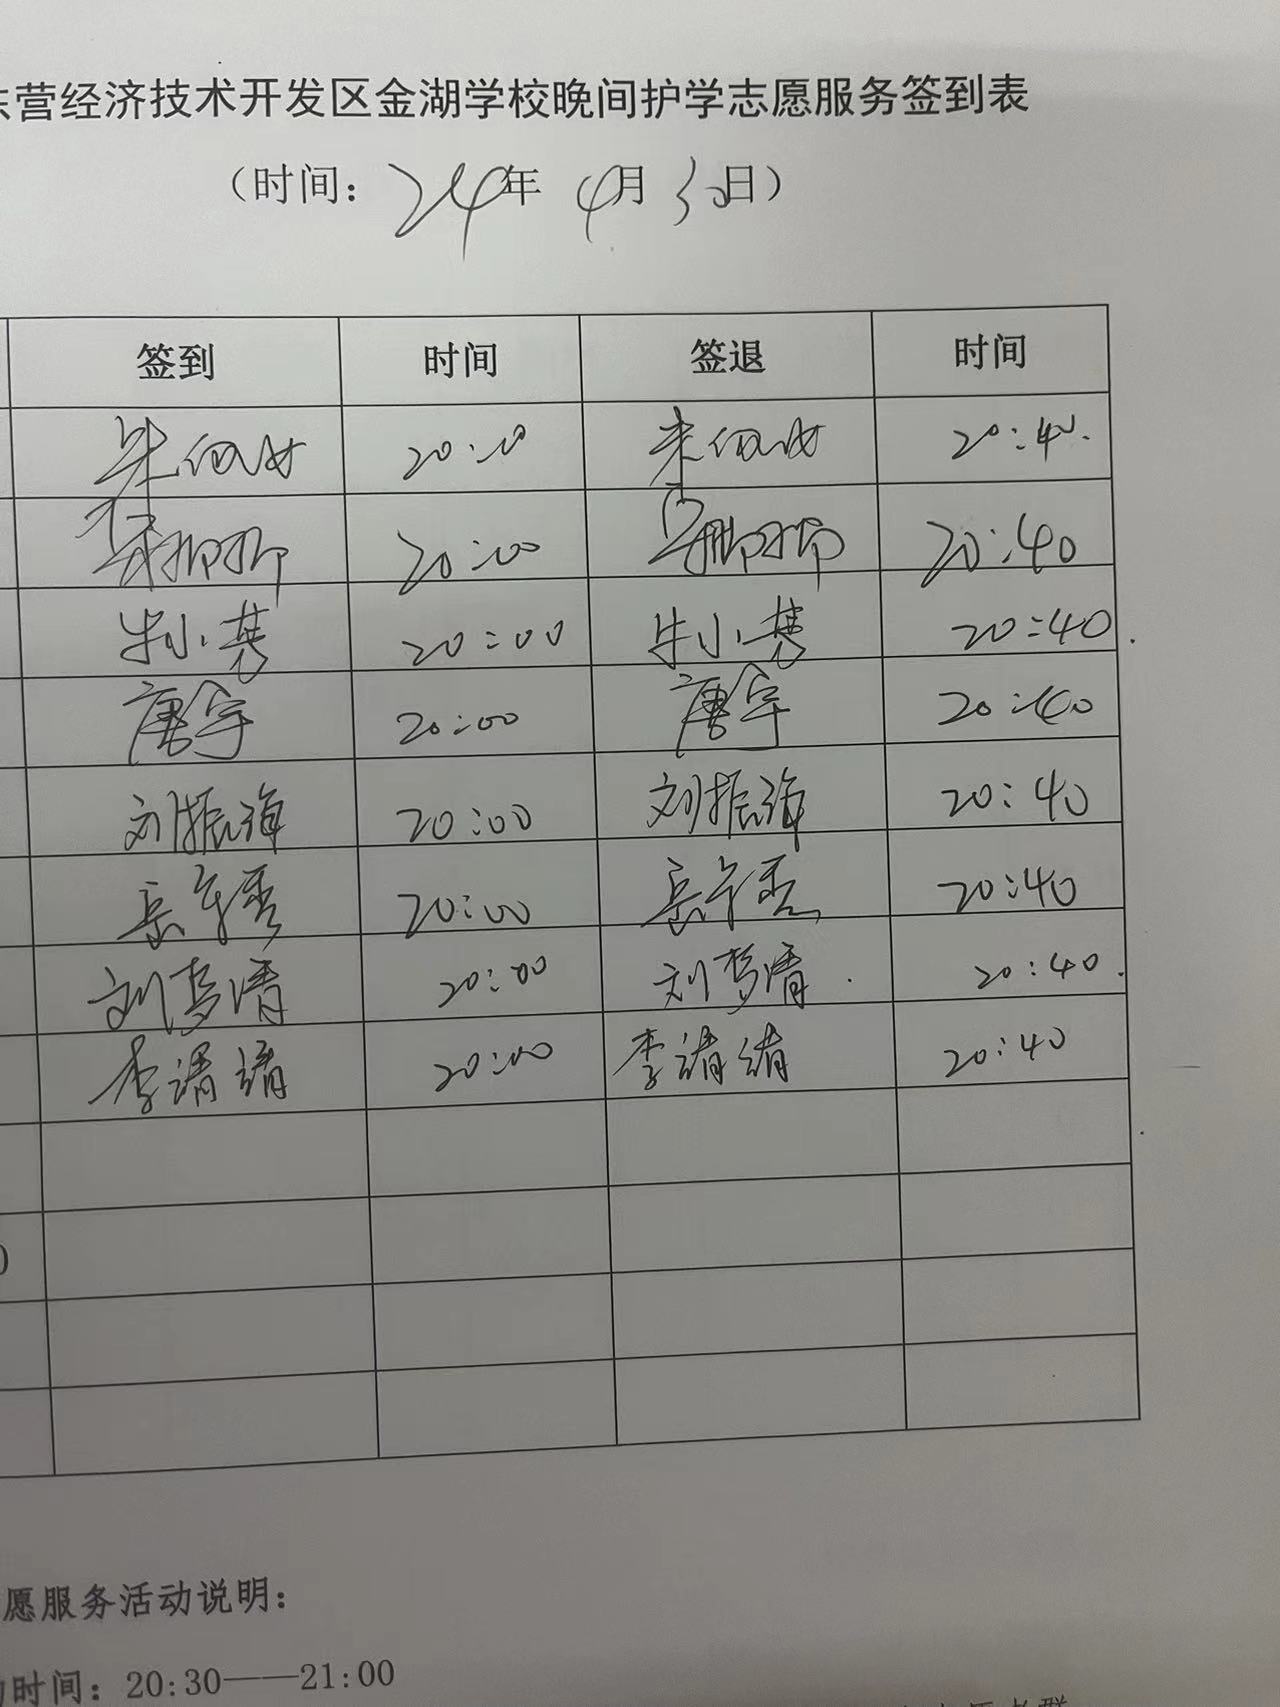 营经济技术开发区金湖学校晚间护学志愿服务签到表
（时间：24年4月30日）
签到 时间 签退 时间
20:00 20:40.
20:00 20:40
牛小慧 20:00 牛小慧 20:40.
唐宇 20:00 唐宇 20:40
刘振海 20:00 刘振海 20:40
20:00 20:40
刘梦清 20:00 刘梦清. 20:40.
李清绪 20:00 李清绪 20:40
愿服务活动说明：
时间：20:30——21:00